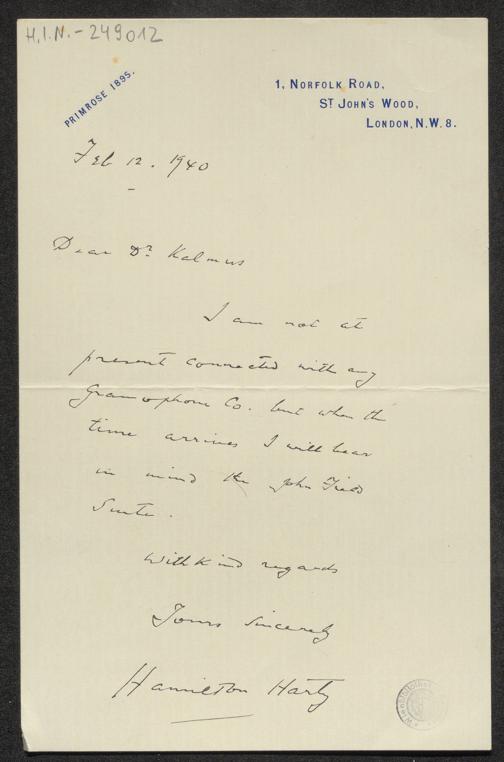 H.I.N.-249012
PRIMROSE 1895.
1, NORFOLK ROAD,
ST JOHN'S WOOD,
LONDON, N.W. 8.
Feb 12. 1940
Dear Dr. Kalmus
I am not at
present connected with any
Gramophone Co. but when the
time arrives I will bear
in mind the John Field
Suite.
With kind regards
Yours Sincerely
Hamilton Harty